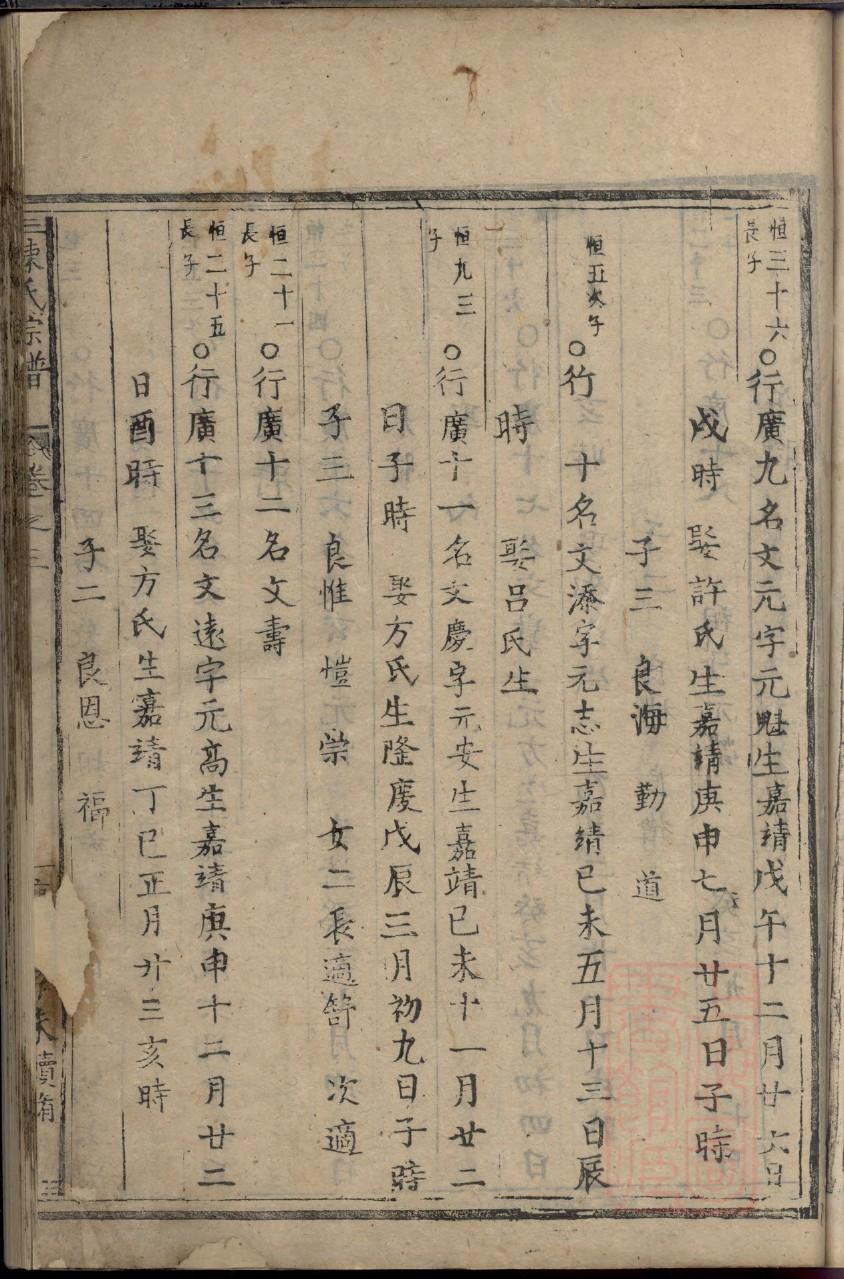 恒三十六
長子
○行廣九名文元字元魁生嘉靖戊午十二月廿六日
戌時 娶許氏生嘉靖庚申七月廿五日子時
子三 良海 勤 道
恒五次子
○行 十名文添字元志生嘉靖己未五月十三日辰
時 娶吕氏生
恒九三
子
○行廣十一名文慶字元安生嘉靖己未十一月廿二
日子時 娶方氏生隆慶戊辰三月初九日子時
子三 良惟 愷 崇 女二長適 次適
恒二十一
長子
○行廣十二名文壽
恒二十五
長子
○行廣十三名文遠字元高生嘉靖庚申十二月廿二
日酉時 娶方氏生嘉靖丁巳正月廿三亥時
子二 良恩 福
陳氏宗譜 卷之三 續脩